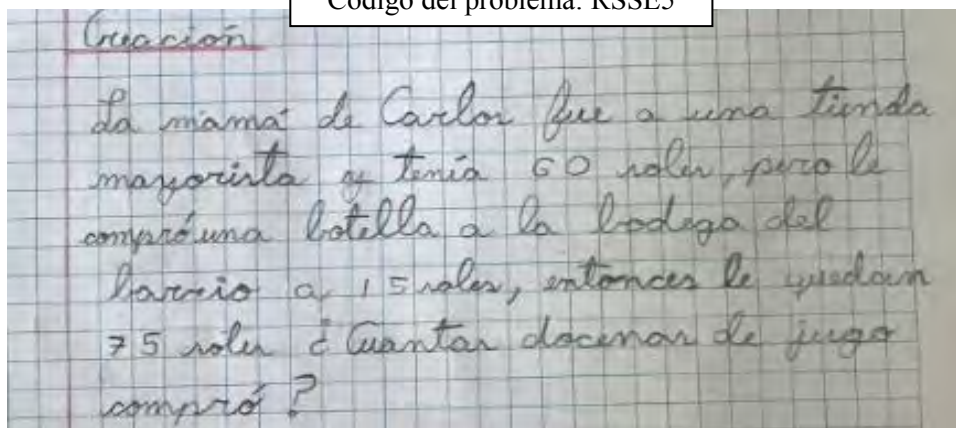 Código del problema: RSSE5
Creación
La mamá de Carlos fue a una tienda
mayorista y tenía 60 soles, pero le
compró una botella a la bodega del
barrio a 15 soles, entonces le quedan
75 soles ¿Cuantas docenas de jugo
compró?